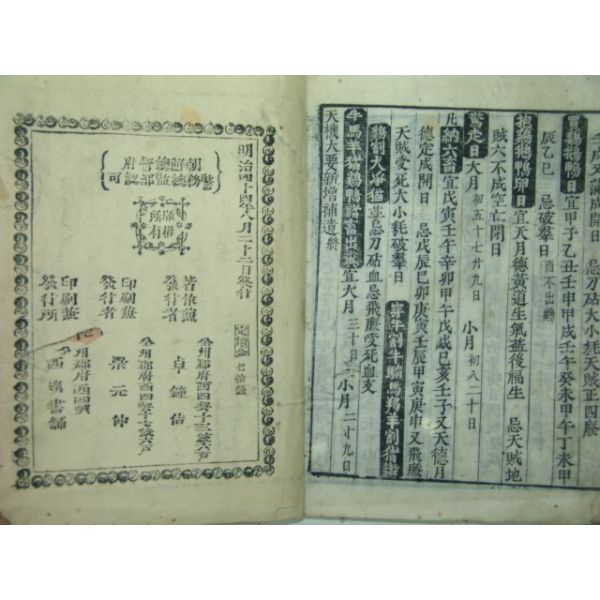 成開日 忌刀砧大小耗天賊四廢
買鷄鵝鴨日宜甲子乙丑壬申甲戌壬午癸未甲午丁未甲
辰乙巳 忌破羣日 酉不出鷄
抱鷄鵝鴨卵日宜天月德黃道生氣益後福生 忌天賊地
賊六不成空亡開日
鶩走日大月 初五十七廿九日 小月 初八二十日
凡納六畜宜戊寅壬午辛卯甲午戊戌己亥壬子又天德月
德定成開日 忌戊辰巳卯庚寅壬辰甲寅庚申又飛廉
天賊受死大小耗破羣日
鷄割犬 忌刀砧血忌飛廉受死血支
牛馬羊猪鷄鴨 吉出 宜大月 三十日 小月 二十九日
天機大要新增補遺終
明治四十四年八月二十二日發行
定價金 七拾錢
朝鮮總督府
警務總監部認可
版權所有
著作兼發行者
公州郡府西四契十三統六戶
卓鐘佶
印刷兼發行者
公州郡府西四契十七統六戶
梁元仲
印刷兼發行所
州郡府西四契
書舖